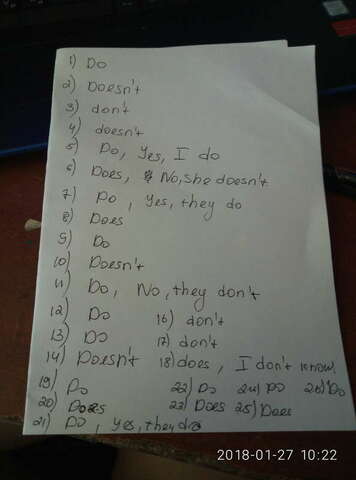 1) Do
2) Doesn't
3) don't
4) doesn't
5) Do, Yes, I do
6) Does, No, she doesn't
7) Do, Yes, they do
8) Does
9) Do
10) Doesn't
11) Do, No, they don't
12) Do 16) don't
13) Do 17) don't
14) Doesn't 18) does, I don't know.
19) Do 22) Do 24) Do 26) Do
20) Does 23) Does 25) Does
21) Do, yes, they do
2018-01-27 10:22